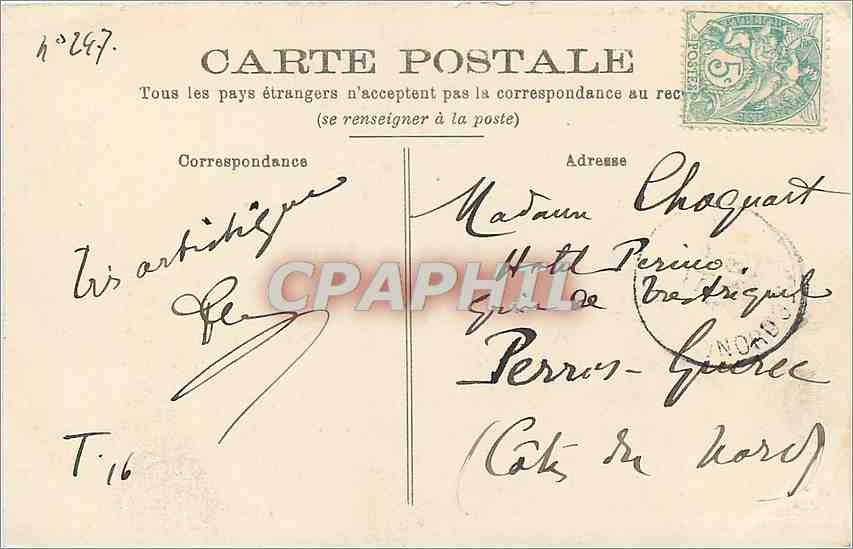 n° 247.
CARTE POSTALE
Tous les pays étrangers n'acceptent pas la correspondance au rec
(se renseigner à la poste)
POSTES
5c
Correspondance
Adresse
Très artistique
T. 16
Madame Choquart
Hotel Perino.
de Trestrignel
Perros-Guirec
(Côtes du Nord)
NORD
CPAPHIL